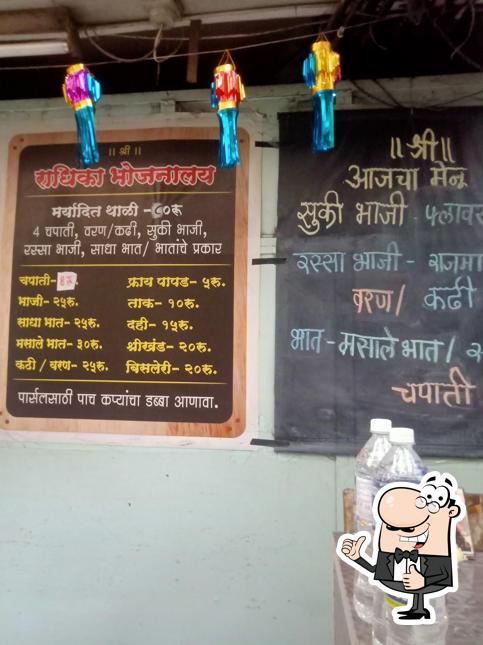 ॥ श्री ॥
राधिका भोजनालय
मर्यादित थाळी -८०रू
4 चपाती, वरण/कढी, सुकी भाजी,
रस्सा भाजी, साधा भात/ भातांचे प्रकार
चपाती-
भाजी- २५रु.
साधा भात- २५रु.
मसाले भात- ३०रु.
कढी / वरण- २५रु.
फ्राय पापड- ५रु.
ताक- १०रु.
दही- १५रु.
श्रीखंड- २०रु.
बिसलेरी- २०रु.
पार्सलसाठी पाच कप्यांचा डब्बा आणावा.
॥ श्री ॥
आजचा मेनू
सुकी भाजी - फ्लावर
रस्सा भाजी - राजमा
वरण/ कढी
भात - मसाले भात/
चपाती